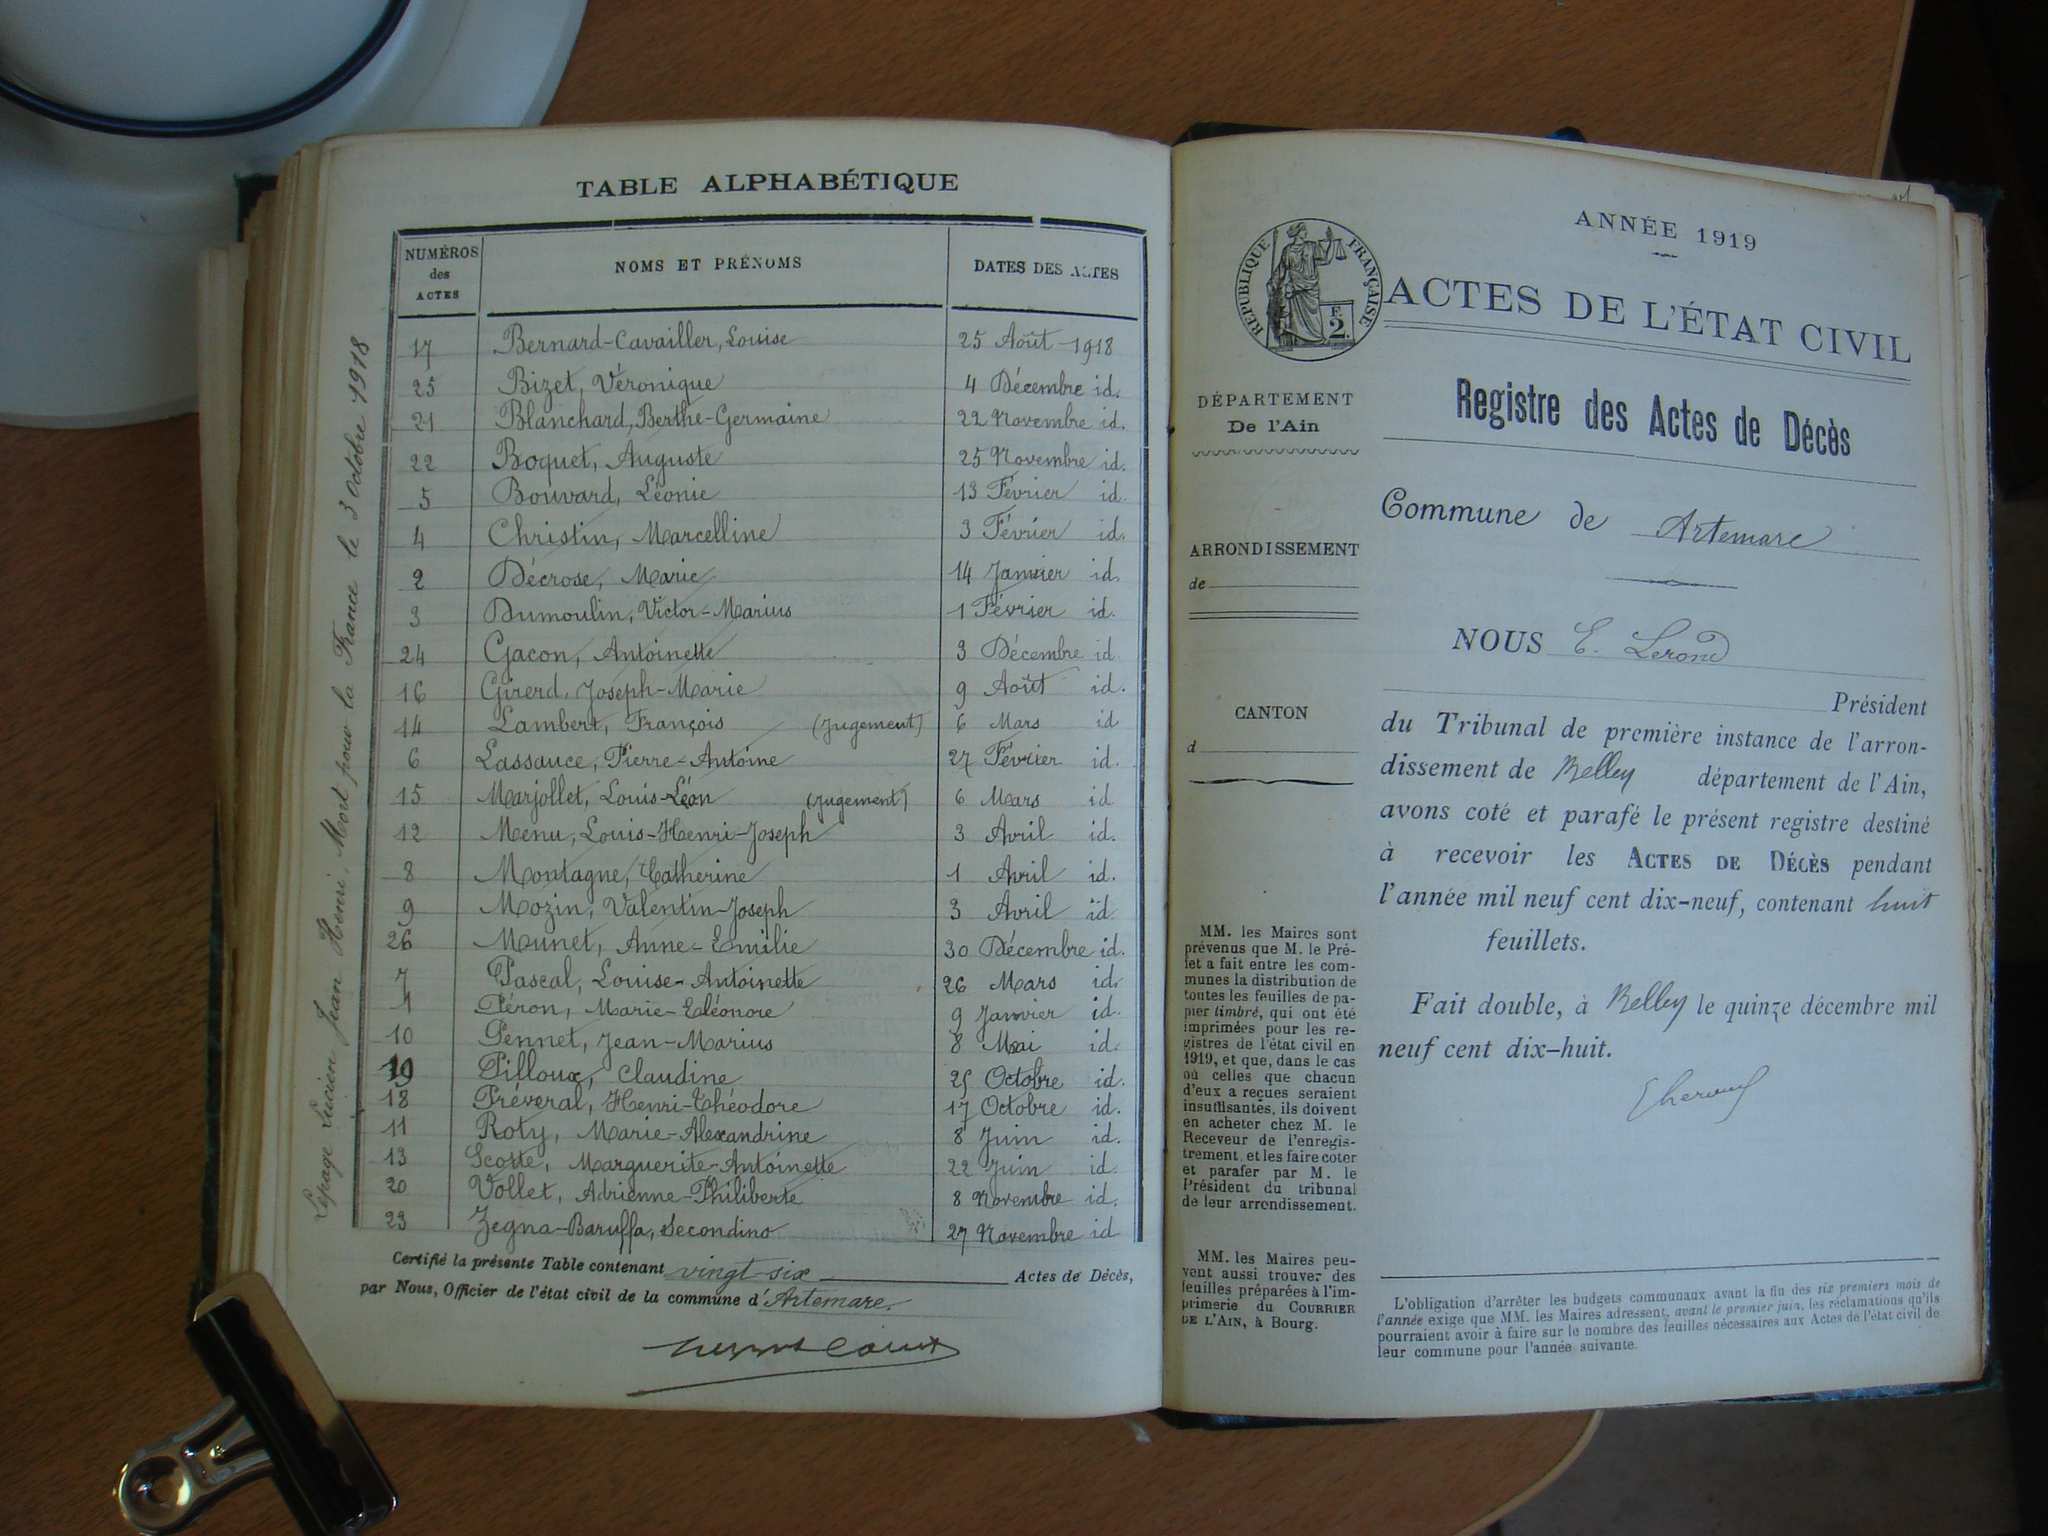 TABLE ALPHABÉTIQUE
NUMÉROS des ACTES NOMS ET PRÉNOMS DATES DES ACTES
17 Bernard-Cavailler, Louise 25 Août 1918
25 Bizet, Véronique 4 Décembre id.
21 Blanchard, Berthe-Germaine 22 Novembre id.
22 Boquet, Auguste 25 Novembre id.
5 Bouvard, Léonie 13 Février id.
4 Christin, Marcelline 3 Février id.
2 Décrose, Marie 14 Janvier id.
3 Dumoulin, Victor-Marius 1 Février id.
24 Gacon, Antoinette 3 Décembre id
16 Girerd, Joseph-Marie 9 Août id.
14 Lambert, François (Jugement) 6 Mars id
6 Lassauce, Pierre-Antoine 27 Février id.
15 Marjollet, Louis-Léon (Jugement) 6 Mars id
12 Menu, Louis-Henri-Joseph 3 Avril id.
8 Montagne, Catherine 1 Avril id.
9 Mozin, Valentin-Joseph 3 Avril id.
26 Munet, Anne-Emilie 30 Décembre id.
7 Pascal, Louise-Antoinette 26 Mars id.
1 Péron, Marie-Eléonore 9 Janvier id.
10 Pennet, Jean-Marius 8 Mai id.
19 Pilloux, Claudine 25 Octobre id.
18 Préveral, Henri-Théodore 17 Octobre id.
11 Roty, Marie-Alexandrine 8 Juin id.
13 Scotte, Marguerite-Antoinette 22 Juin id.
20 Vollet, Adrienne-Philiberte 8 Novembre id.
23 Zegna-Baruffa, Secondino 27 Novembre id
Certifié la présente Table contenant vingt-six Actes de Décès,
par Nous, Officier de l'état civil de la commune d'Artemare.
Lepage Lucien, Jean Henri, Mort pour la France le 3 octobre 1918
ANNÉE 1919
RÉPUBLIQUE FRANÇAISE
F. 2
ACTES DE L'ÉTAT CIVIL
Registre des Actes de Décès
DÉPARTEMENT
De l'Ain
ARRONDISSEMENT
de
CANTON
d
Commune de Artemare
NOUS E. Lerond
Président
du Tribunal de première instance de l'arron-
dissement de Belley département de l'Ain,
avons coté et parafé le présent registre destiné
à recevoir les ACTES DE DÉCÈS pendant
l'année mil neuf cent dix-neuf, contenant huit
feuillets.
Fait double, à Belley le quinze décembre mil
neuf cent dix-huit.
MM. les Maires sont
prévenus que M. le Pré-
fet a fait entre les com-
munes la distribution de
toutes les feuilles de pa-
pier timbré, qui ont été
imprimées pour les re-
gistres de l'état civil en
1919, et que, dans le cas
où celles que chacun
d'eux a reçues seraient
insuffisantes, ils doivent
en acheter chez M. le
Receveur de l'enregis-
trement, et les faire coter
et parafer par M. le
Président du tribunal
de leur arrondissement.
MM. les Maires peu-
vent aussi trouver des
feuilles préparées à l'im-
primerie du COURRIER
DE L'AIN, à Bourg.
L'obligation d'arrêter les budgets communaux avant la fin des six premiers mois de
l'année exige que MM. les Maires adressent, avant le premier juin, les réclamations qu'ils
pourraient avoir à faire sur le nombre des feuilles nécessaires aux Actes de l'état civil de
leur commune pour l'année suivante.